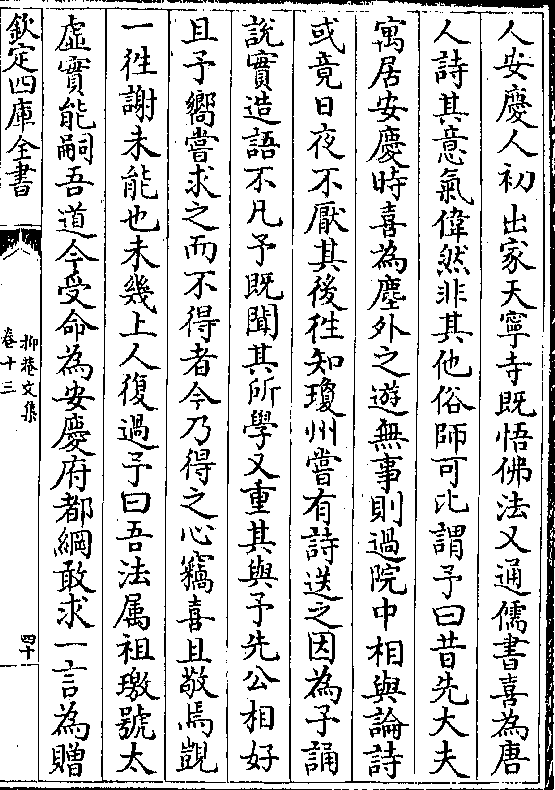 人安慶人初出家天寧寺既悟佛法又通儒書喜為唐
人詩其意氣偉然非其他俗師可比謂予曰昔先大夫
寓居安慶時喜為塵外之遊無事則過院中相與論詩
或竟日夜不厭其後徃知瓊州嘗有詩送之因為予誦
說實造語不凡予既聞其所學又重其與予先公相好
且予嚮嘗求之而不得者今乃得之心竊喜且敬焉覬
一徃謝未能也未幾上人復過予曰吾法属祖璬號太
虛實能嗣吾道今受命為安慶府都綱敢求一言為贈
欽定四庫全書
抑菴文集
卷十三
四十